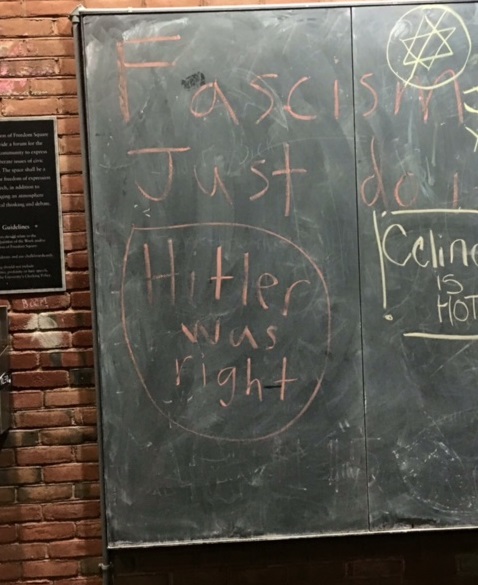 Fascism
Just do i
Hitler
was
right
Celine
IS
HOT
on of Freedom Square
ide a forum for the
community to express
The space shall be a
freedom of expression
ch, in addition to
ging an atmosphere
al thinking and debate.
Guidelines